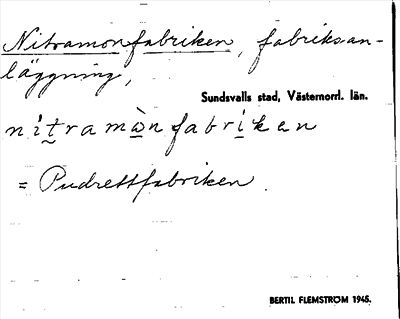 Nitramonfabriken, fabriksan-
läggning,
Sundsvalls stad, Västernorrl. län.
nitramònfabriken
= Pudrettfabriken.
BERTIL FLEMSTRÖM 1945.